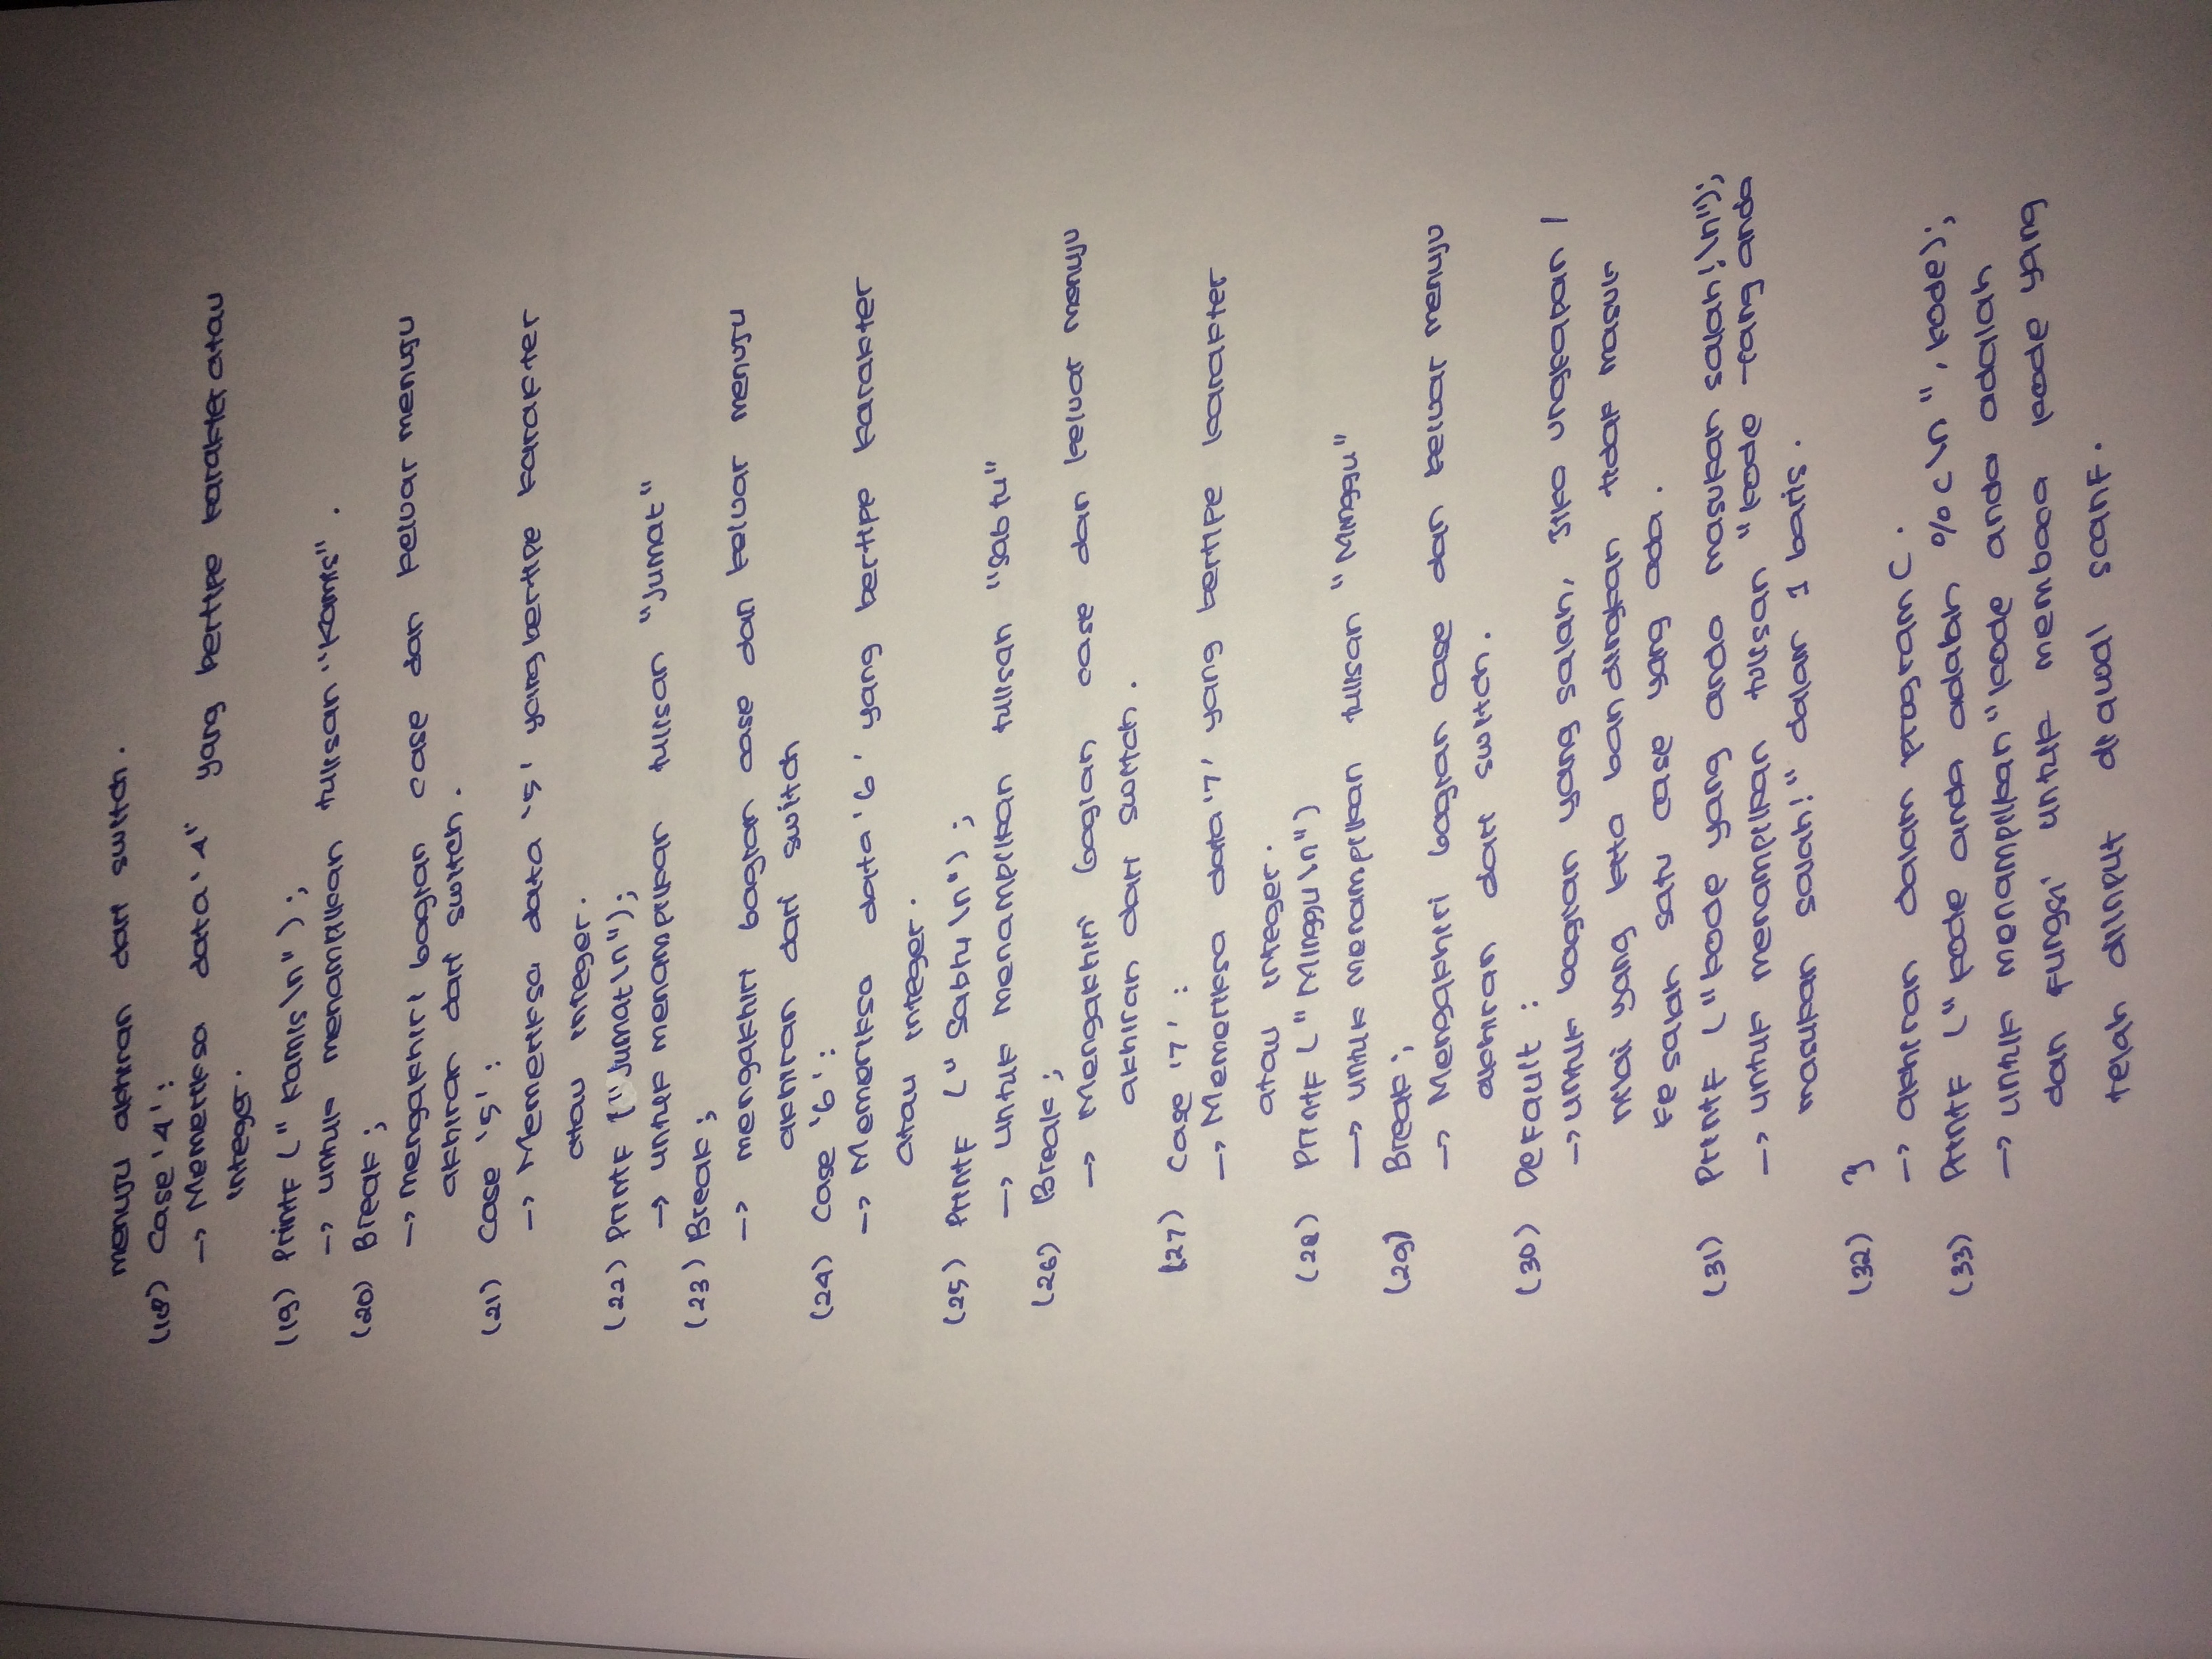 menuju akhiran dari switch.
(18) Case '4':
-> Memeriksa data '4" yang bertipe karakter atau
integer.
(19) Printf ("Kamis\n");
-> untuk menampilkan tulisan "Kamis".
(20) Break;
-> mengakhiri bagian case dan keluar menuju
akhiran dari switch.
(21) Case '5':
-> Memeriksa data '5' yang bertipe karakter
atau integer.
(22) Printf ("Jumat\n");
-> untuk menampilkan tulisan "Jumat"
(23) Break;
-> mengakhiri bagian case dan keluar menuju
akhiran dari switch
(24) Case '6':
-> Memeriksa data '6' yang bertipe karakter
atau integer.
(25) Printf ("Sabtu\n");
-> untuk menampilkan tulisan "Sabtu"
(26) Break;
-> Mengakhiri bagian case dan keluar menuju
akhiran dari switch.
(27) Case '7':
-> Memeriksa data '7' yang bertipe karakter
atau integer.
(28) Printf ("Minggu\n")
-> untuk menampilkan tulisan "Minggu"
(29) Break;
-> Mengakhiri bagian case dan keluar menuju
akhiran dari switch.
(30) Default :
-> untuk bagian yang salah, Jika ungkapan /
nilai yang kita bandingkan tidak masuk
ke salah satu case yang ada.
(31) Printf ("kode yang anda masukan salah!\n");
-> untuk menampilkan tulisan "kode yang anda
masukan salah!" dalam 1 baris.
(32) }
-> akhiran dalam program C.
(33) Printf ("kode anda adalah %c\n", kode);
-> untuk menampilkan "kode anda adalah
dan fungsi untuk membaca kode yang
telah diinput di awal scanf.